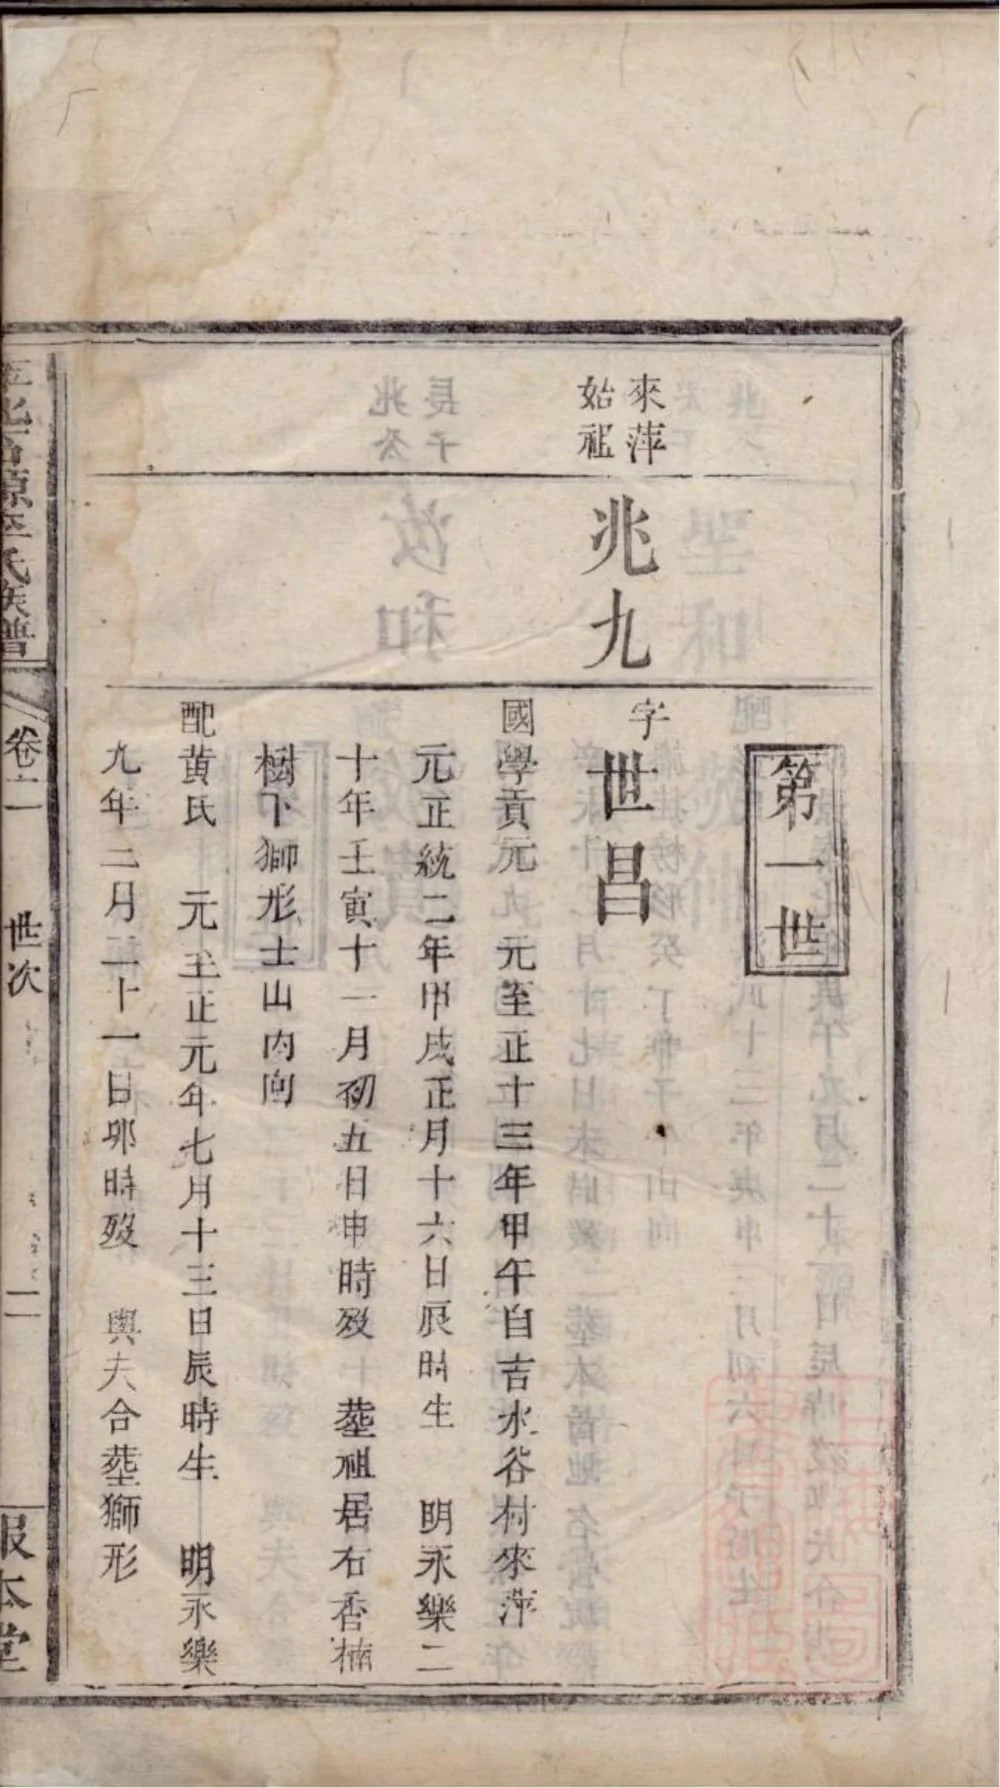 第一世
來萍
始祖
兆九
字
世昌
國學貢元 元至正十三年甲午自吉水谷村來萍
元正統二年甲戌正月十六日辰時生 明永樂二
十年壬寅十一月初五日申時歿 塟祖居右香楠
樹下獅形士山內向
配黃氏 元至正元年七月十三日辰時生 明永樂
九年二月二十一日卯時歿 與夫合塟獅形
源李氏族譜
卷
世次
二
報本堂